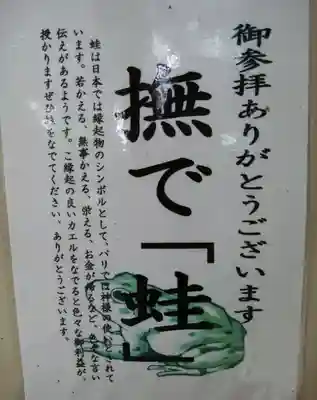 御参拝ありがとうございます
撫で「蛙」
蛙は日本では縁起物のシンボルとして、バリでは神様の使いとされて
います。若かえる、無事かえる、栄える、お金が帰るなど、色々な言い
伝えがあるようです。この縁起の良いカエルをなでると色々な御利益が、
授かりますぜひ蛙をなでてください。ありがとうございます。